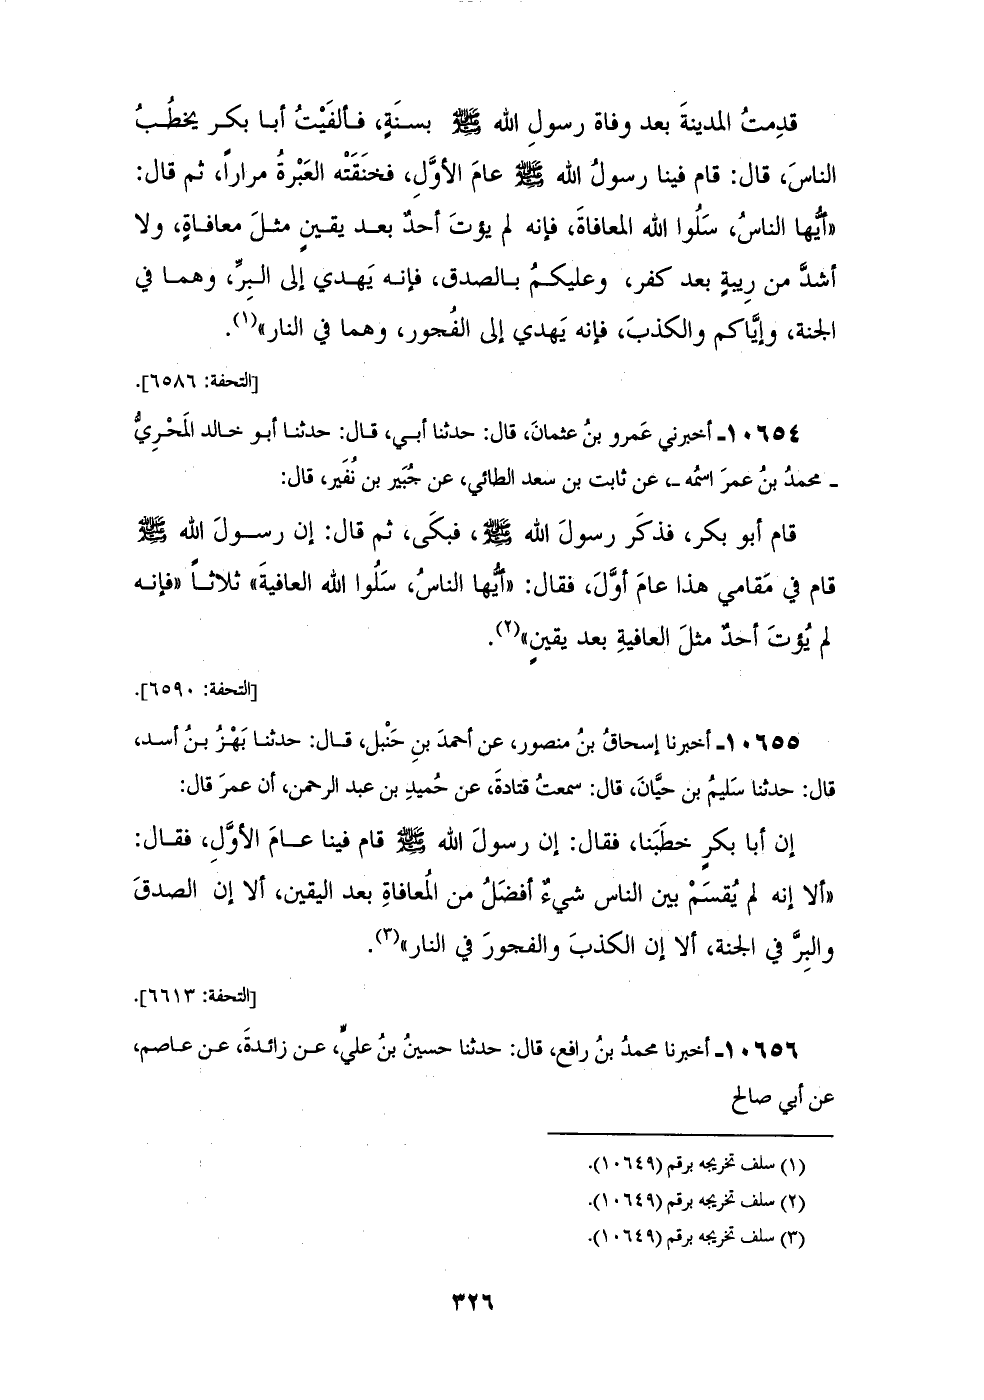 قدِمتُ المدينةَ بعد وفاة رسولِ الله ﷺ بسنَةٍ، فألفَيْتُ أبا بكر يخطُبُ
الناسَ، قال: قام فينا رسولُ الله ﷺ عامَ الأوَّلِ، فخنَقَتْه العَبْرةُ مراراً، ثم قال:
«أيُّها الناسُ، سَلُوا الله المعافاةَ، فإنه لم يؤتَ أحدٌ بعد يقينٍ مثلَ معافاةٍ، ولا
أشدَّ من رِيبةٍ بعد كفر، وعليكمُ بالصدق، فإنه يَهدي إلى البِرِّ، وهما في
الجنة، وإيَّاكم والكذبَ، فإنه يَهدي إلى الفُجور، وهما في النار»(١).
[التحفة: ٦٥٨٦].
١٠٦٥٤ـ أخبرني عَمرو بنُ عثمانَ، قال: حدثنا أبي، قال: حدثنا أبو خالد المَحْرِيُّ
ـ محمدُ بنُ عمرَ اسمُه ـ، عن ثابت بن سعد الطائي، عن جُبَير بن نُفَير، قال:
قام أبو بكر، فذكَر رسولَ الله ﷺ، فبكَى، ثم قال: إن رسولَ الله ﷺ
قام في مَقامي هذا عامَ أوَّلَ، فقال: «أيُّها الناسُ، سَلُوا الله العافيةَ» ثلاثاً «فإنه
لم يُؤتَ أحدٌ مثلَ العافيةِ بعد يقينٍ»(٢).
[التحفة: ٦٥٩٠].
١٠٦٥٥ـ أخبرنا إسحاقُ بنُ منصور، عن أحمدَ بنِ حَنْبل، قال: حدثنا بَهْزُ بنُ أسد،
قال: حدثنا سَليمُ بن حيَّانَ، قال: سمعتُ قتادةَ، عن حُميدِ بن عبد الرحمن، أن عمرَ قال:
إن أبا بكرٍ خطَبَنا، فقال: إن رسولَ الله ﷺ قام فينا عامَ الأوَّلِ، فقال:
«ألا إنه لم يُقسَمْ بين الناس شيءٌ أفضَلُ من المُعافاةِ بعد اليقين، ألا إن الصدقَ
والبِرَّ في الجنة، ألا إن الكذبَ والفجورَ في النار»(٣).
[التحفة: ٦٦١٣].
١٠٦٥٦ـ أخبرنا محمدُ بنُ رافع، قال: حدثنا حسينُ بنُ عليٍّ، عن زائدةَ، عن عاصم،
عن أبي صالح
(١) سلف تخريجه برقم (١٠٦٤٩).
(٢) سلف تخريجه برقم (١٠٦٤٩).
(٣) سلف تخريجه برقم (١٠٦٤٩).
٣٢٦